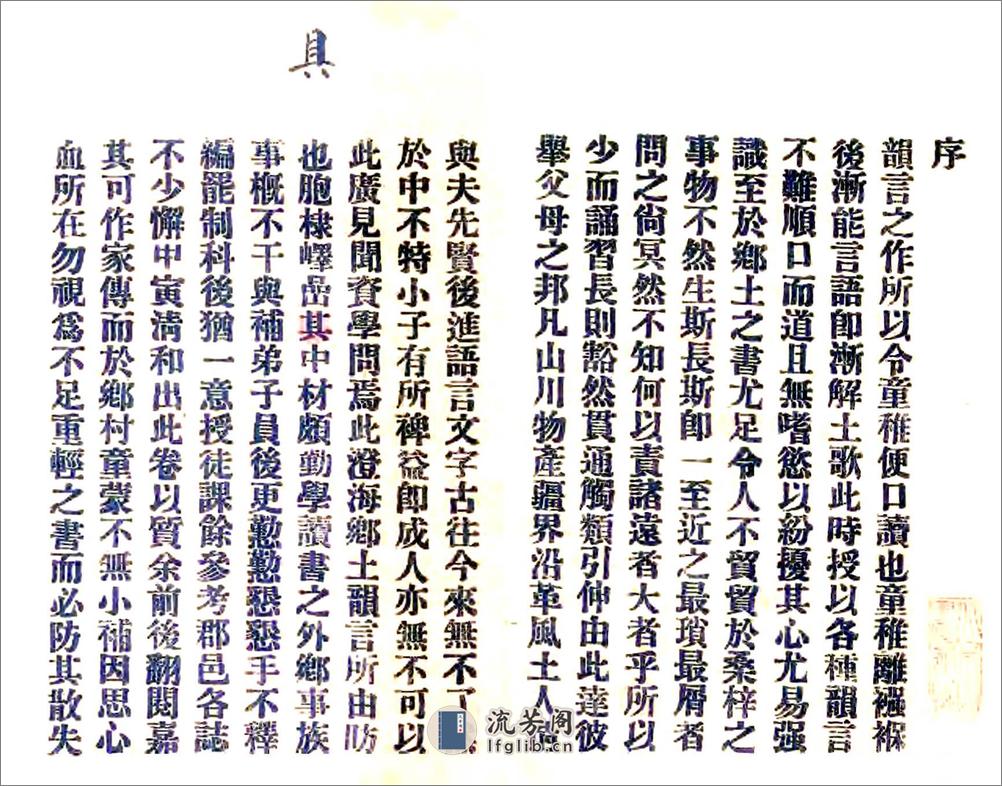 序
韻言之作所以令童稚便口讀也童稚離襁褓
後漸能言語即漸解土歌此時授以各種韻言
不難順口而道且無嗜慾以紛擾其心尤易强
識至於鄉土之書尤足令人不貿貿於桑梓之
事物不然生斯長斯即一至近之最瑣最屑者
問之尙冥然不知何以責諸遠者大者乎所以
少而誦習長則豁然貫通觸類引伸由此達彼
舉父母之邦凡山川物產疆界沿革風土人
具
與夫先賢後進語言文字古往今來無不了
於中不特小子有所裨益即成人亦無不可以
此廣見聞資學問焉此澄海鄉土韻言所由昉
也胞棣嶧嵒其中材頗勤學讀書之外鄉事族
事槪不干與補弟子員後更懃懃懇懇手不釋
編罷制科後猶一意授徒課餘參考郡邑各誌
不少懈甲寅淸和出此卷以質余前後翻閱嘉
其可作家傳而於鄉村童蒙不無小補因思心
血所在勿視爲不足重輕之書而必防其散失
流芳阁
lfglib.cn